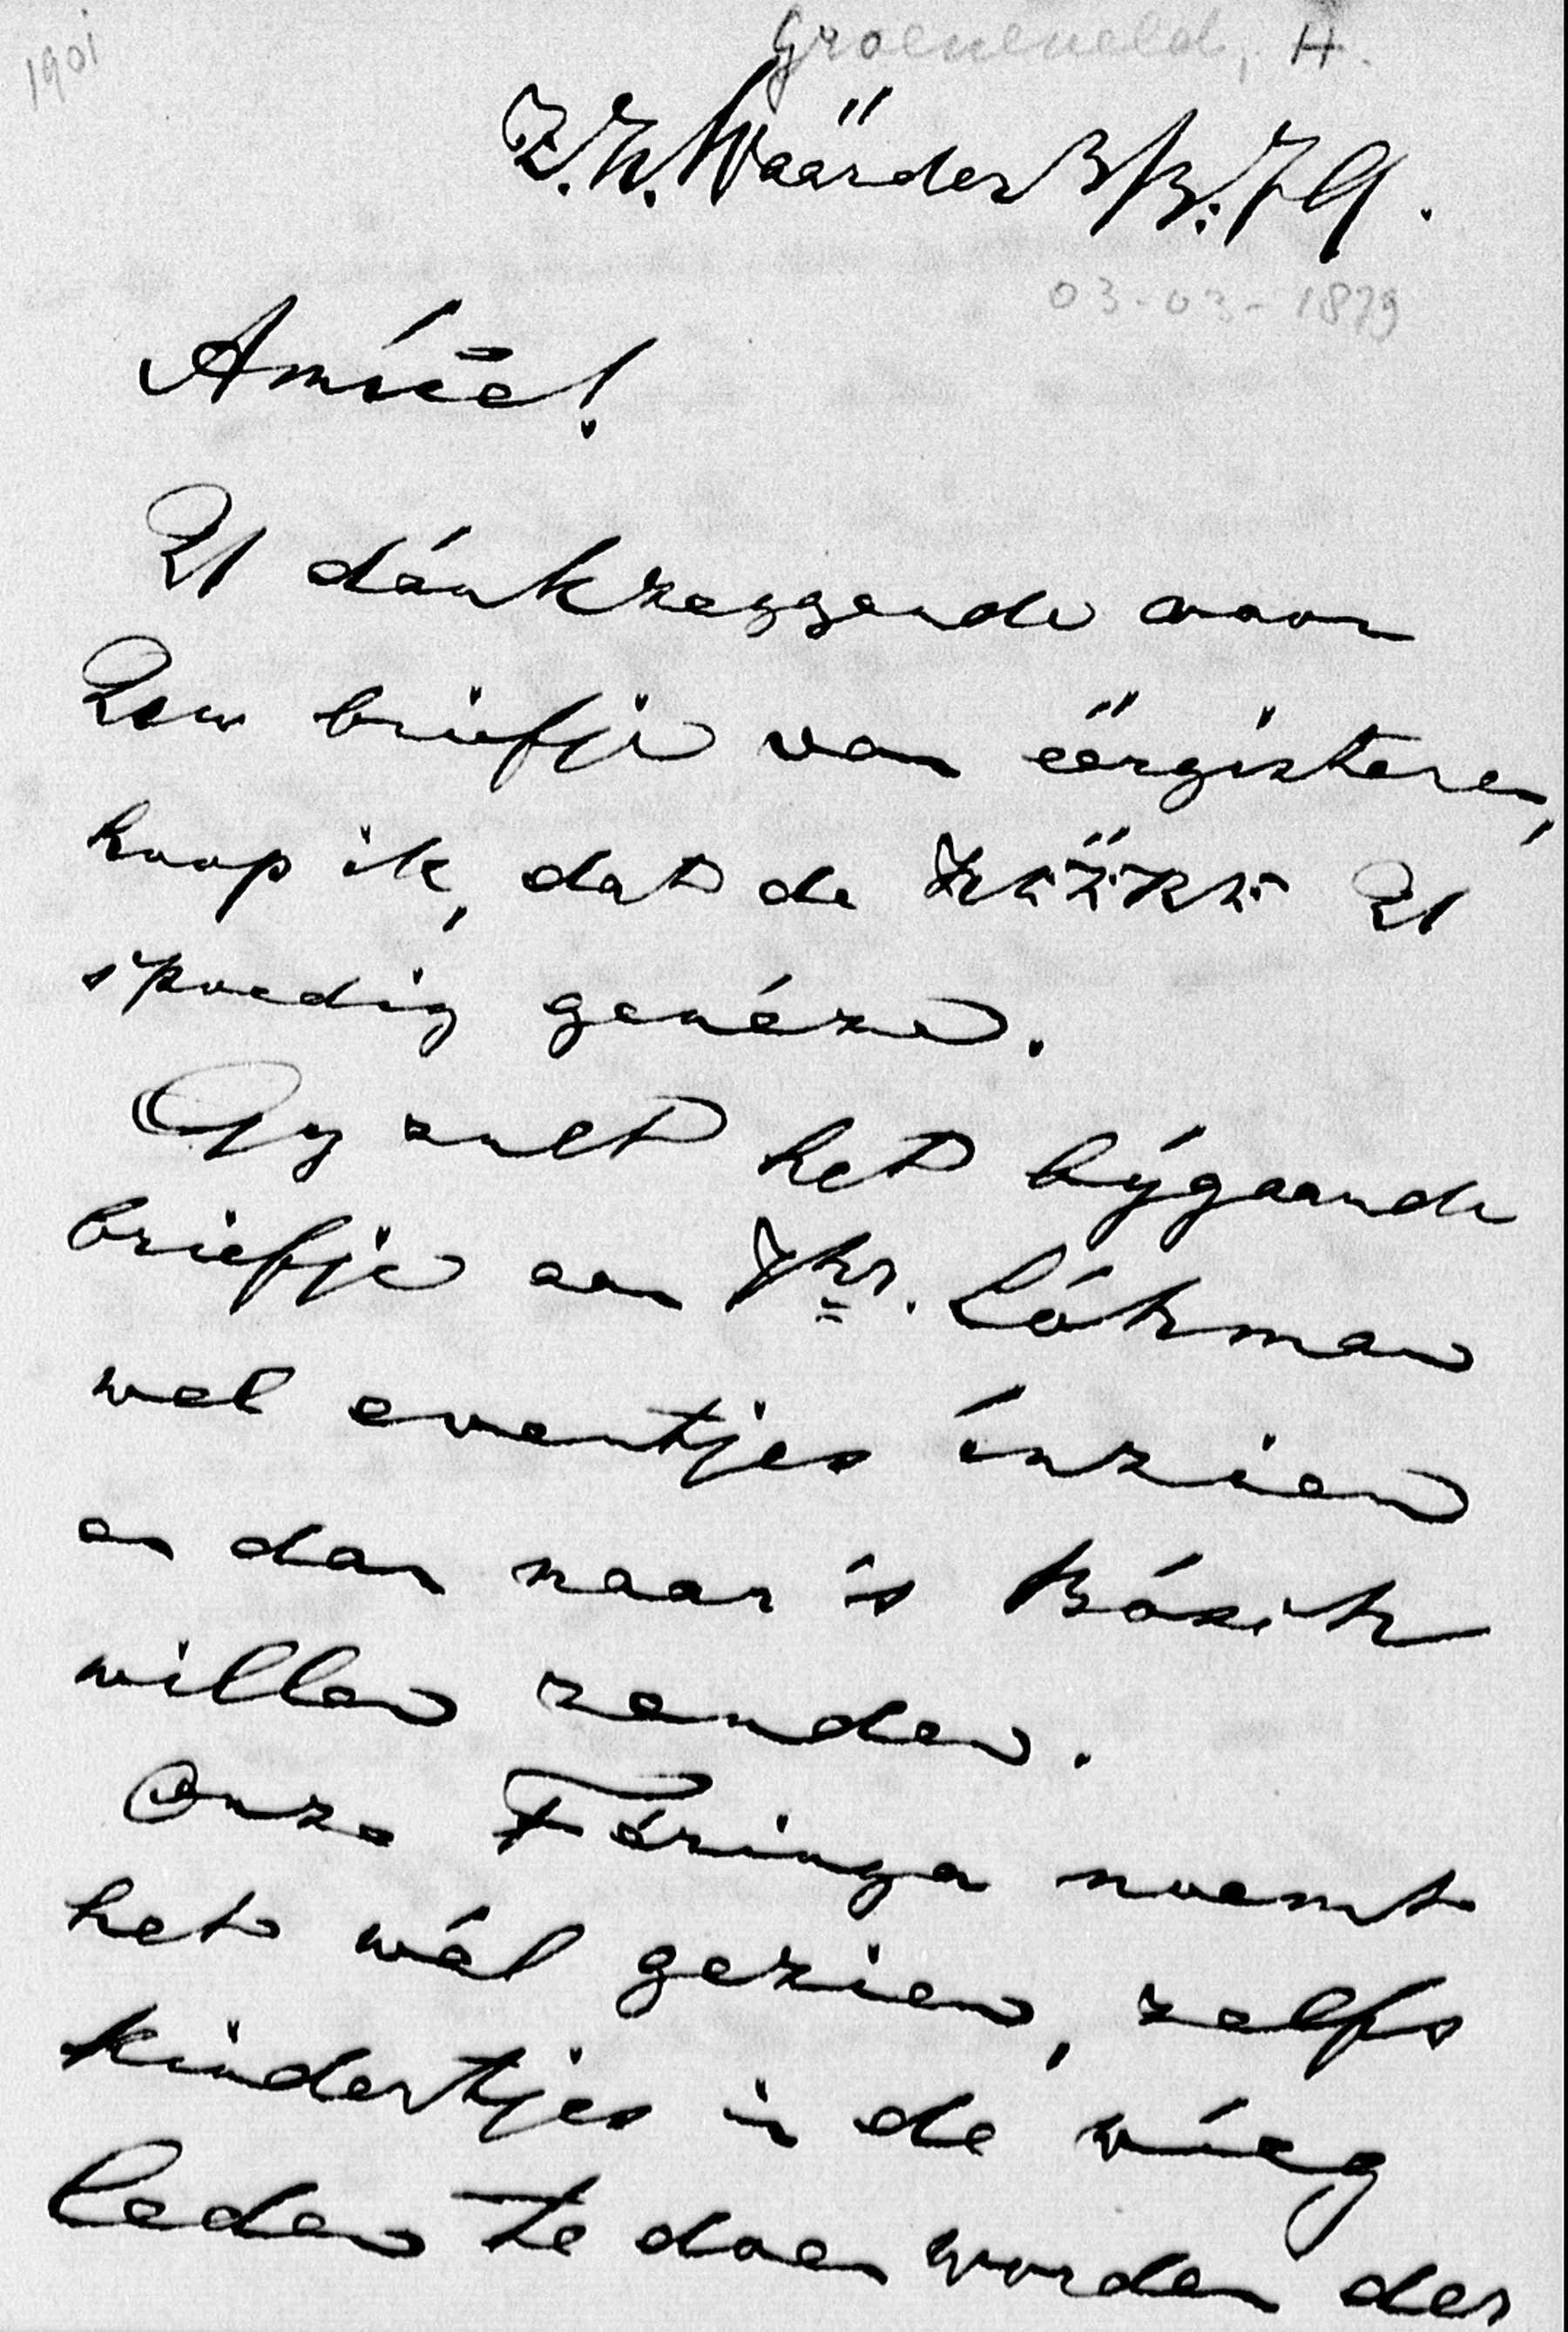 1901
Groeneveld, H.
Z.H. Wäärder 3/3.79.
03-03-1879
Amíce!
U dánkzeggende voor
Uw briefje van ëërgisteren,
hoop ik, dat de HEERE U
spoedig genéze.
Gy zult het býgaande
briefje aan Jhr. Lóhman
wel eventjes ínzien
en dan naar 's Bósch
willen zenden.
Onze Féringa noemt
het wél gezien, zelfs
kindertjes in de wíeg
leden te doen worden der